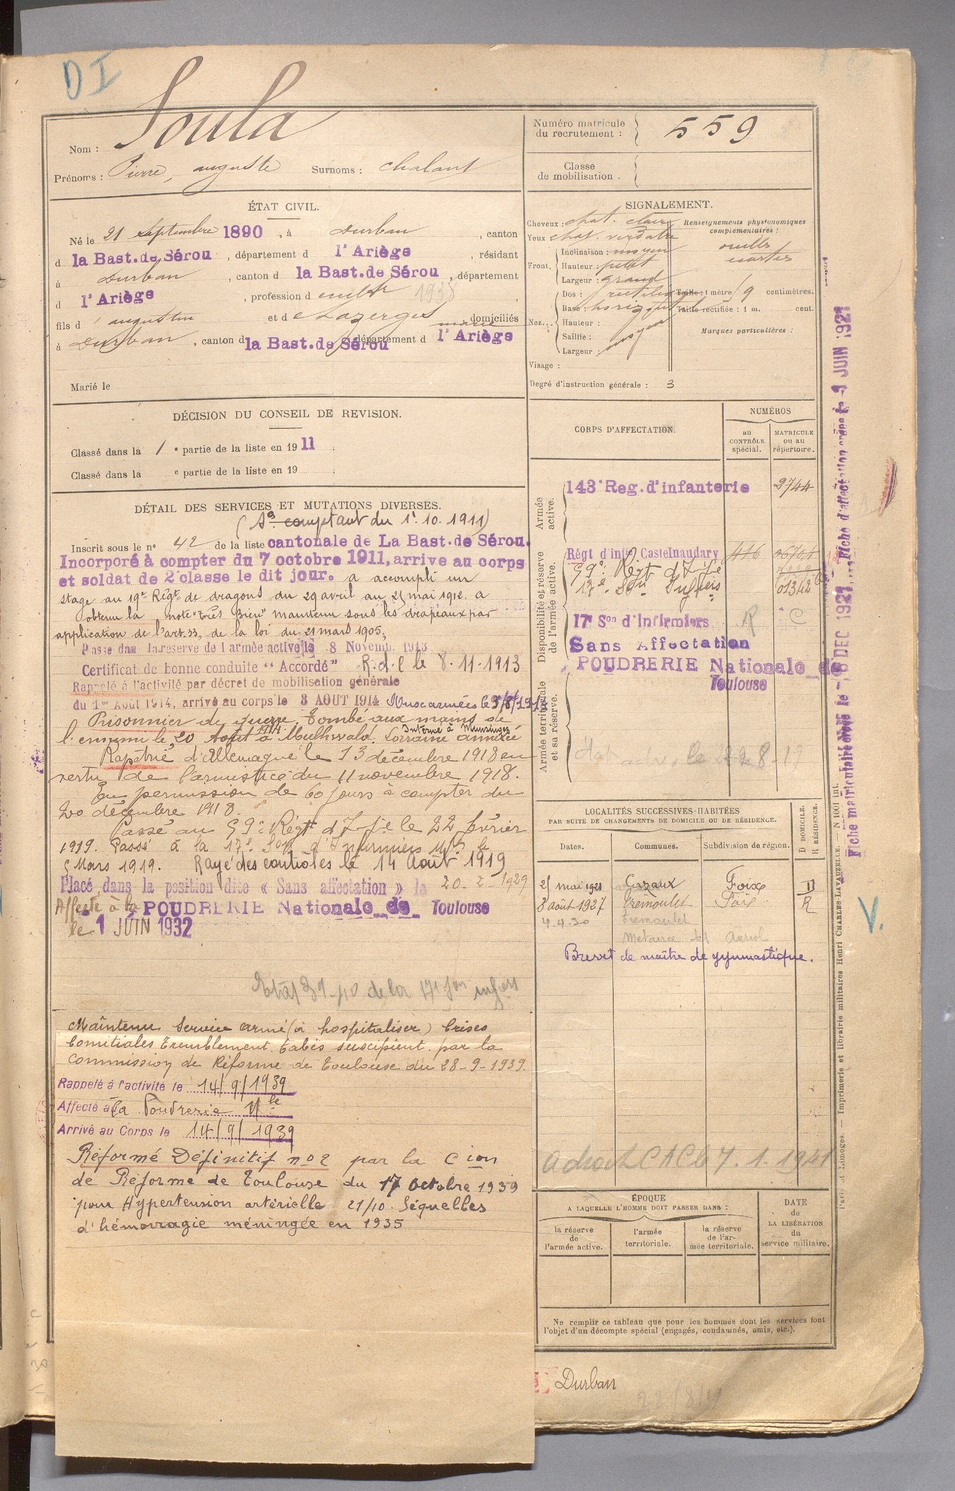 DI
Nom : Soula
Prénoms : Pierre, auguste Surnoms : chalant
Numéro matricule du recrutement : 559
Classe de mobilisation :
ÉTAT CIVIL.
Né le 21 septembre 1890, à Durban, canton
d la Bast. de Sérou, département d l'Ariège, résidant
à Durban, canton d la Bast. de Sérou, département
d l'Ariège, profession d 1938
fils d'augustin et d Lazerges marie domiciliés
à Durban, canton d la Bast. de Sérou département d l'Ariège
Marié le
SIGNALEMENT.
Cheveux : chat. clairs
Yeux chat. verdâtre
Front. Inclinaison : moyen
Hauteur : petit
Largeur : grand
Nez. Dos : rectiligne
Base : horizontal
Hauteur :
Saillie : moyen
Largeur :
Visage :
Renseignements physionomiques complémentaires :
oreilles écartées
Taille : 1 mètre centimètres.
Taille rectifiée : 1 m. cent.
Marques particulières :
Degré d'instruction générale : 3
DÉCISION DU CONSEIL DE REVISION.
Classé dans la 1e partie de la liste en 1911.
Classé dans la e partie de la liste en 19 .
DÉTAIL DES SERVICES ET MUTATIONS DIVERSES.
( comptant du 1er.10.1911)
Inscrit sous le n° 42 de la liste cantonale de La Bast. de Sérou.
Incorporé à compter du 7 octobre 1911, arrive au corps
et soldat de 2e classe le dit jour. a accompli un
stage au 19e Régt de dragons du 29 avril au 25 mai 1912. a
obtenu la note "Très Bien" maintenu sous les drapeaux par
application de l'art. 33, de la loi du 21 mars 1905,
Passé dans la réserve de l'armée active le 8 Novemb. 1913
Certificat de bonne conduite "Accordé" R.d.C le 8.11.1913
Rappelé à l'activité par décret de mobilisation générale
du 1er Août 1914, arrivé au corps le 3 AOUT 1914 aux armées le
Prisonnier de guerre. Tombé aux mains de
l'ennemi le 20 Août 1914 à Lorraine annexée
Interné à Munsingen
Rapatrié d'Allemagne le 13 décembre 1918 en
vertu de l'armistice du 11 novembre 1918.
En permission de 60 jours à compter du
20 décembre 1918.
Passé au 59e Régt d'Ife le 22 février
1919. Passé à la 17e Son d'Infirmiers Mres le
5 Mars 1919. Rayé des contrôles le 14 Août 1919
Placé dans la position dite « Sans affectation » le 20-2-1929
Affecté à la POUDRERIE Nationale de Toulouse
le 1 JUIN 1932
de la 17e Son
Maintenu Service armé (à hospitaliser) Crises
Comitiales Tremblement Tabès suscipient par la
Commission de Réforme de Toulouse du 28-9-1939.
Rappelé à l'activité le 14/9/1939
Affecté à la Poudrerie Nle
Arrivé au Corps le 14/9/1939
Réformé Définitif n°2 par la Cion
de Réforme de Toulouse du 17 Octobre 1939
pour Hypertension artérielle 21/10 Séquelles
d'hémorragie méningée en 1935
CORPS D'AFFECTATION.
NUMÉROS
au CONTRÔLE spécial.
MATRICULE ou au répertoire.
Armée active.
143e Reg. d'infanterie 3744
Disponibilité et réserve de l'armée active.
Régt d'infie Castelnaudary
59e Régt d'Ife
17e Son Infiers
17e Son d'Infirmiers R C
Sans Affectation
POUDRERIE Nationale de
Toulouse
Armée territoriale et sa réserve.
LOCALITÉS SUCCESSIVES HABITÉES
PAR SUITE DE CHANGEMENTS DE DOMICILE OU DE RÉSIDENCE.
Dates. Communes. Subdivision de région. D DOMICILE. R RÉSIDENCE.
25 mai 1921 Gazaux Foix D
8 août 1927 Tremoulet Foix R
4.4.30 Tremoulet
Brevet de maître de gymnastique.
7.1.1941
ÉPOQUE
A LAQUELLE L'HOMME DOIT PASSER DANS :
la réserve de l'armée active.
l'armée territoriale.
la réserve de l'armée territoriale.
DATE de LA LIBÉRATION du service militaire.
Ne remplir ce tableau que pour les hommes dont les services font
l'objet d'un décompte spécial (engagés, condamnés, omis, etc.).
Durban
Fiche matriculaire créée le 6 DEC 1921. Fiche d'affectation créée le 9 JUIN 1921
Paris et Limoges. — Imprimerie et librairie militaires Henri CHARLES-LAVAUZELLE. — N° 1001 int.
V.